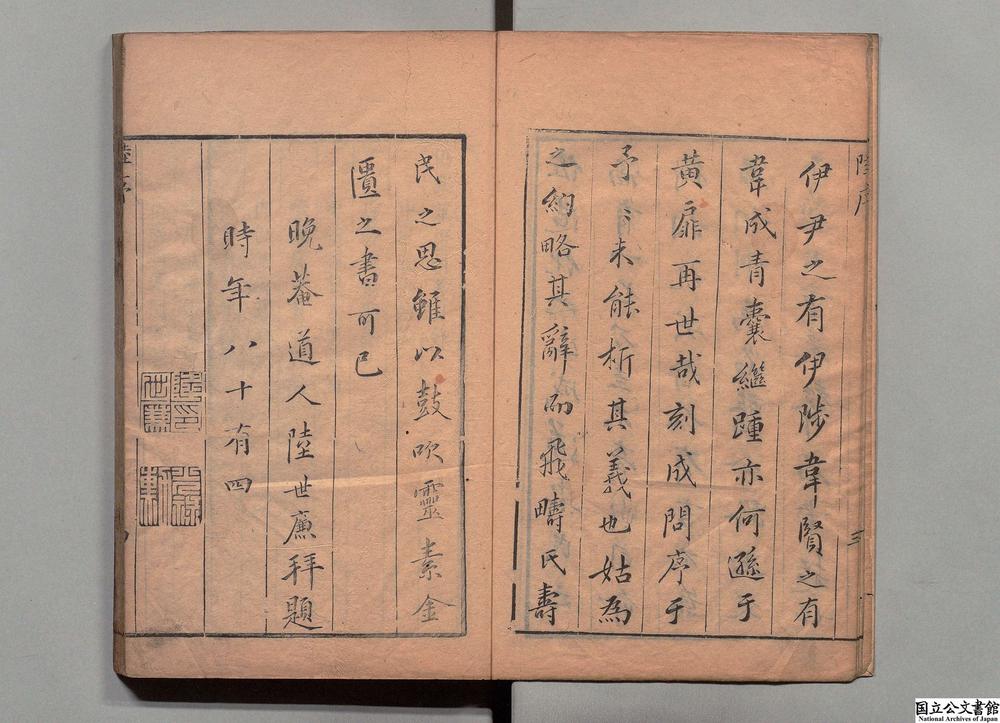 陸序
伊尹之有伊陟韋賢之有
韋成青囊繼踵亦何遜于
黃扉再世哉刻成問序于
予〻未能析其義也姑為
之約略其辭而飛疇氏壽
三
民之思雖以鼓吹靈素金
匱之書可已
晚菴道人陸世廉拜題
時年八十有四
陸序
国立公文書館
National Archives of Japan